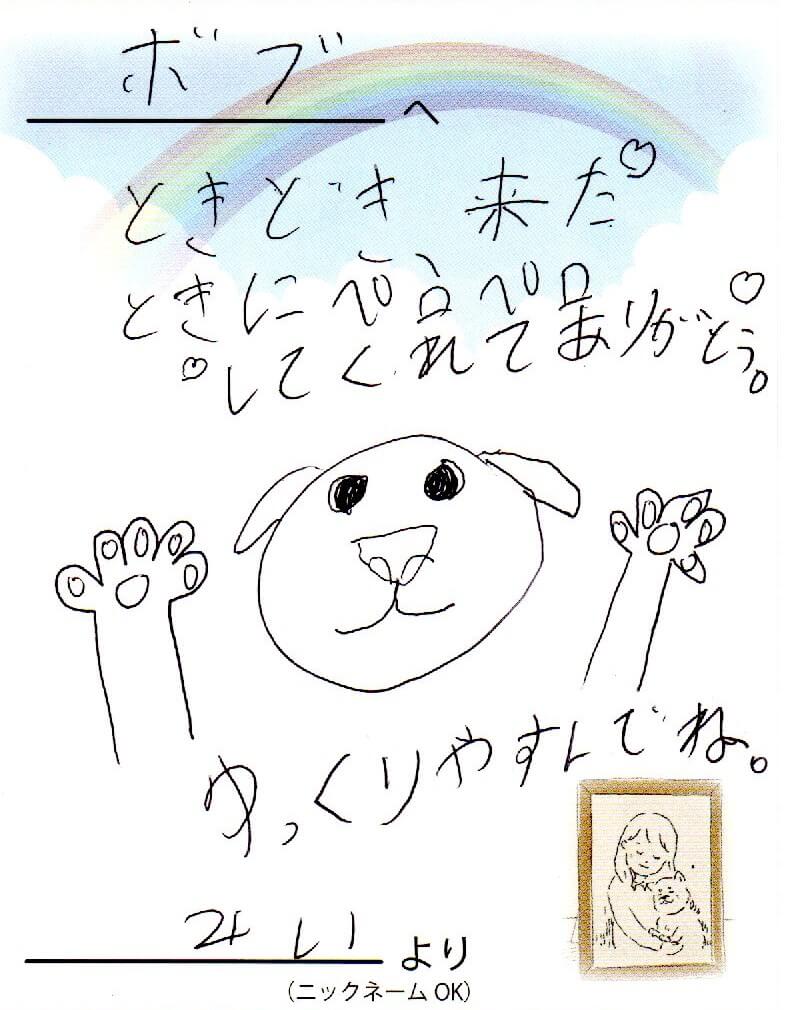 ボブ へ
ときどき 来た♡
ときにペロペロ♡
♡してくれてありがとう。
ゆっくりやすんでね。
みい より
(ニックネーム OK)